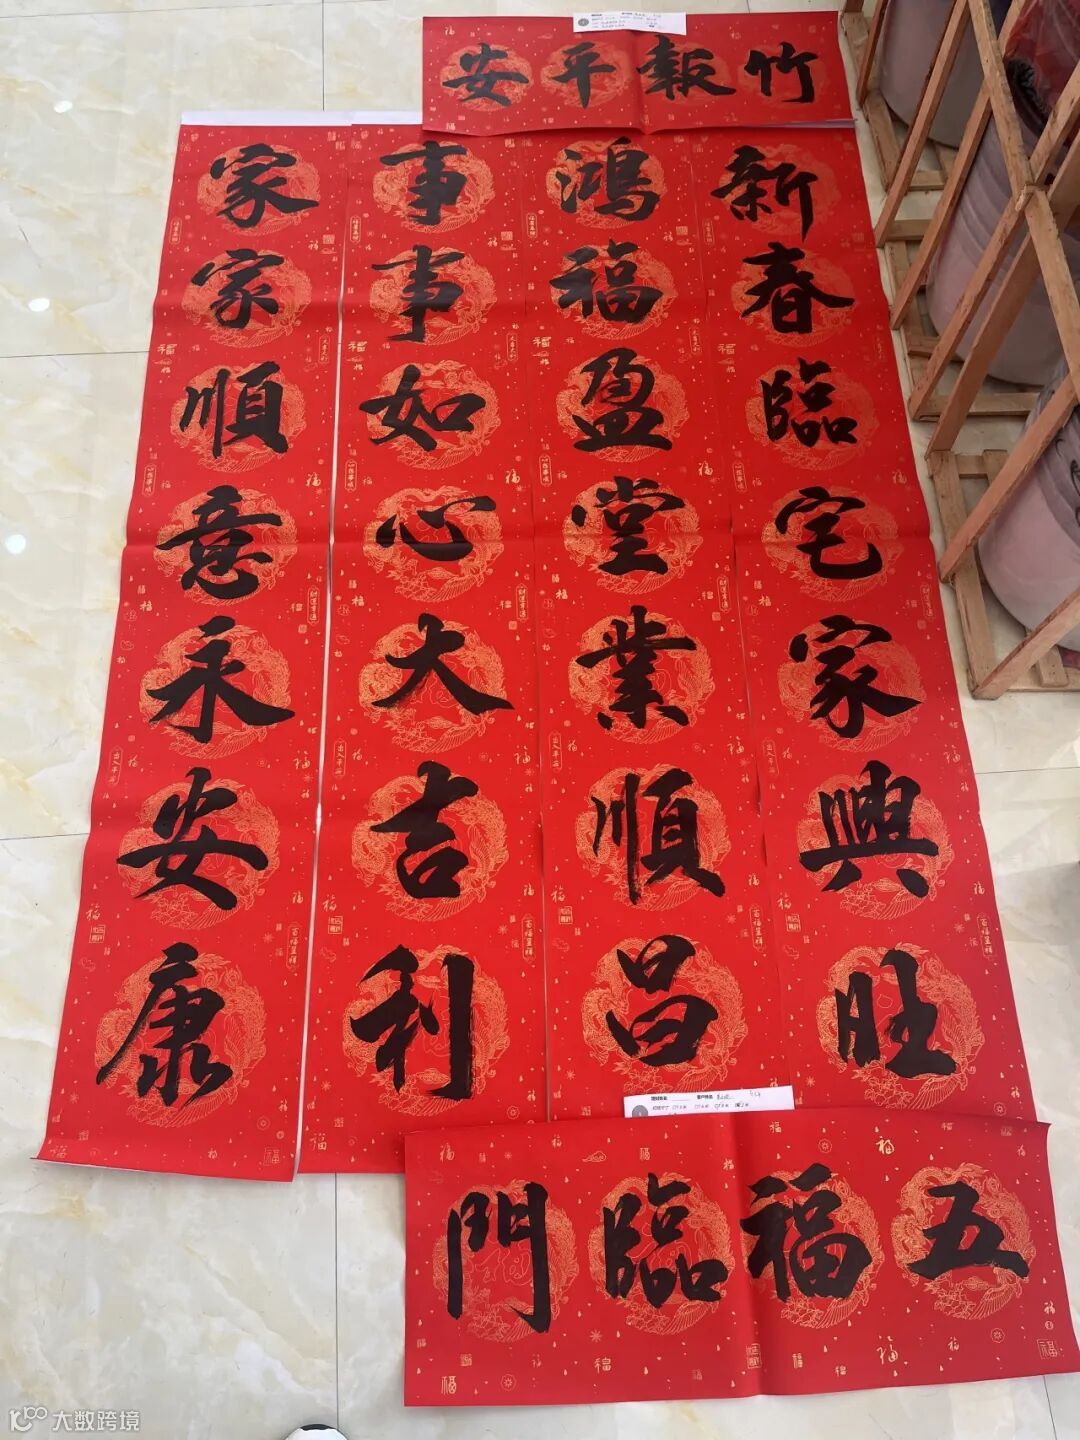 竹報平安
新春臨宅家興旺
鴻福盈堂業順昌
事事如心大吉利
家家順意永安康
五福臨門
大数跨境